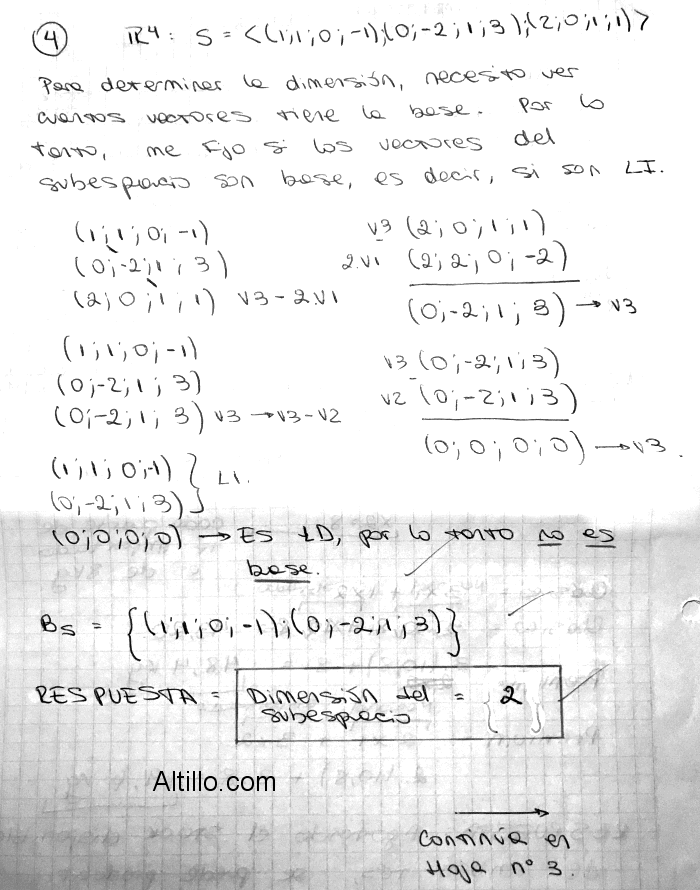 ④ ℝ⁴: S = <(1;1;0;-1);(0;-2;1;3);(2;0;1;1)>
Para determinar la dimensión, necesito ver
cuantos vectores tiene la base. Por lo
tanto, me fijo si los vectores del
subespacio son base, es decir, si son LI.
(1;1;0;-1)
(0;-2;1;3)
(2;0;1;1) V3-2.V1
V3 (2;0;1;1)
-
2.V1 (2;2;0;-2)
(0;-2;1;3) → V3
(1;1;0;-1)
(0;-2;1;3)
(0;-2;1;3) V3 → V3-V2
V3 (0;-2;1;3)
-
V2 (0;-2;1;3)
(0;0;0;0) → V3.
(1;1;0;-1)
(0;-2;1;3) } LI.
(0;0;0;0) → ES LD, por lo tanto no es
base.
Bs = {(1;1;0;-1);(0;-2;1;3)}
RESPUESTA = Dimensión del = {2}
subespacio
Altillo.com
→
Continúa en
Hoja n° 3.